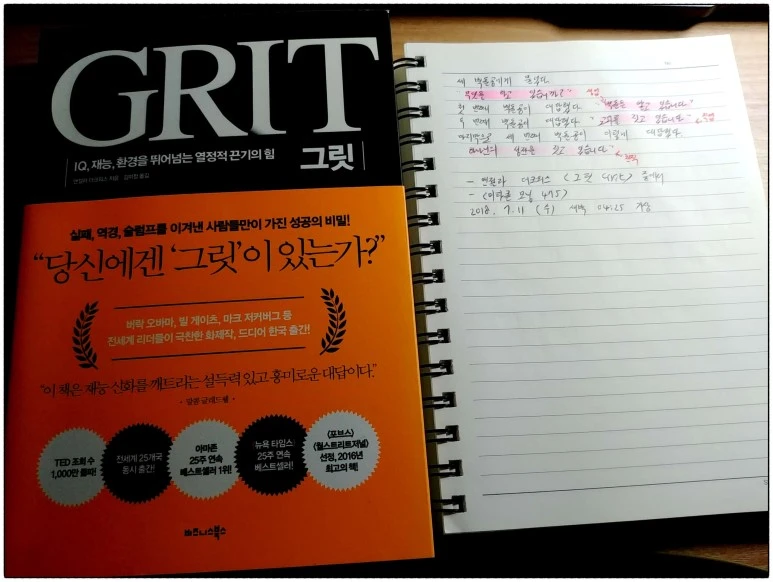 GRIT
IQ, 재능, 환경을 뛰어넘는 열정적 끈기의 힘
그릿
앤절라 더크워스 지음 김미정 옮김
실패, 역경, 슬럼프를 이겨낸 사람들만이 가진 성공의 비밀!
“당신에겐 ‘그릿’이 있는가?”
버락 오바마, 빌 게이츠, 마크 저커버그 등
전세계 리더들이 극찬한 화제작, 드디어 한국 출간!
“이 책은 재능 신화를 깨트리는 설득력 있고 흥미로운 대답이다.”
· 말콤 글래드웰 ·
TED 조회 수
1,000만 돌파!
전세계 25개국
동시 출간!
아마존
25주 연속
베스트셀러 1위!
뉴욕 타임스
25주 연속
베스트셀러!
〈포브스〉
〈월스트리트저널〉
선정, 2016년
최고의 책!
비즈니스북스
세 벽돌공에게 물었다.
무엇을 하고 있습니까? 생업
첫 번째 벽돌공이 대답했다 "벽돌을 쌓고 있습니다"
두 번째 벽돌공이 대답했다 "교회를 짓고 있습니다" 직업
마지막으로 세 번째 벽돌공이 이렇게 대답했다
하나님의 성전을 짓고 있습니다" 천직
- 앤절라 더크워스 <그릿 GRIT> 중에서
- <미라클 모닝 475>
2018. 7. 11 (수) 새벽 04:25 기상